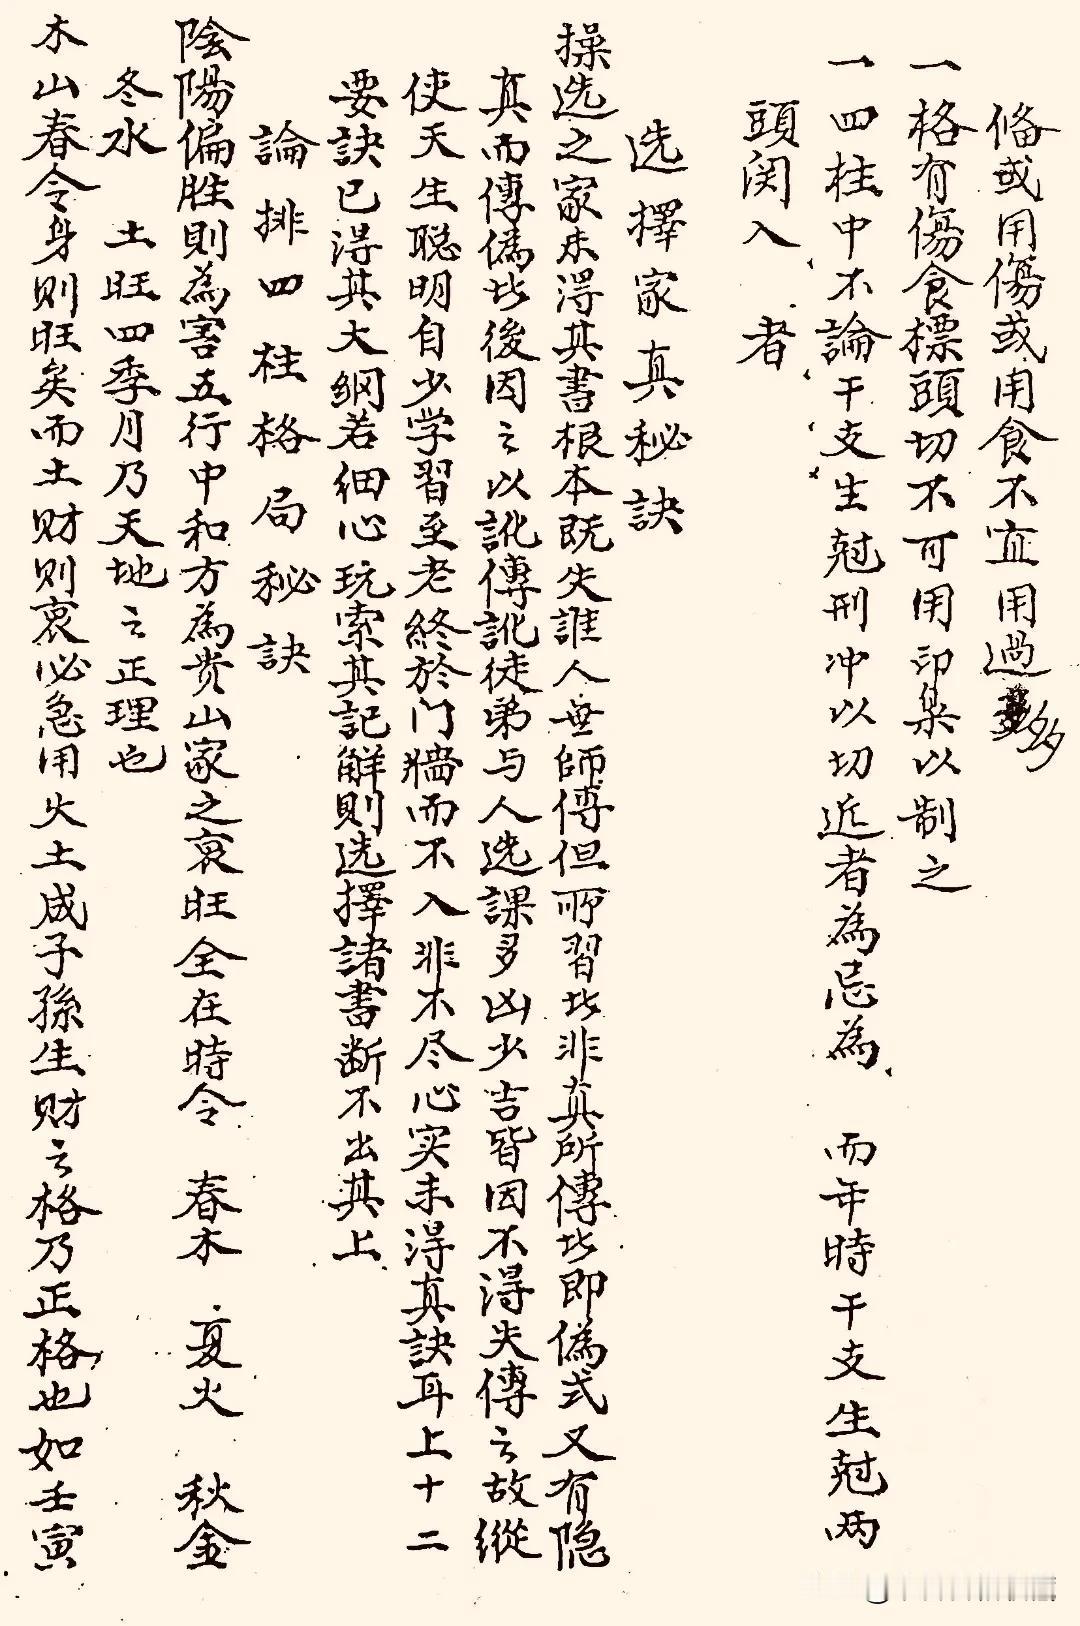 俻或用傷或用食不宜用過多
一格有傷食標頭切不可用印梟以制之
一四柱中不論干支生尅刑冲以切近者為忌為 而年時干支生尅两
頭関入 者
选擇家真秘訣
操选之家未淂其書根本既失誰人無師傅但所習此非真所傳此即偽式又有隐
真而傳偽此後因之以訛傳訛徒弟与人选課多凶少吉皆因不淂失傳之故縱
使天生聪明自少学習至老終於门墻而不入非不尽心实未淂真訣耳上十二
要訣已淂其大纲若细心玩索其記觧則选擇諸書断不出其上
論排四柱格局秘訣
陰陽偏胜則為害五行中和方為贵山家之衰旺全在時令 春木 夏火 秋金
冬水 土旺四季月乃天地之正理也
木山春令身则旺矣而土财则衰必急用火土成子孫生财之格乃正格也如壬寅